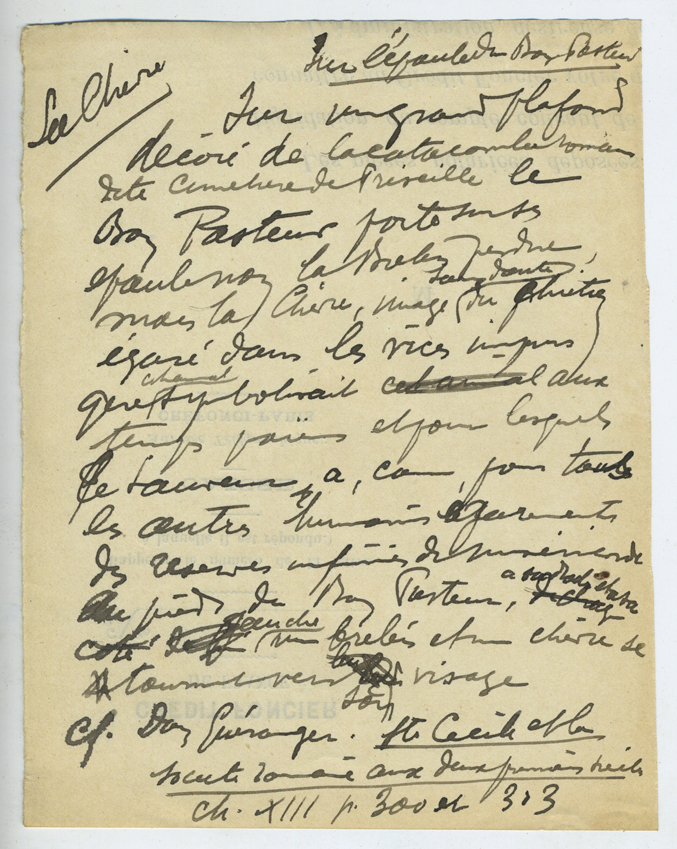 Sur l'épaule du Bon Pasteur
La Chèvre
Sur un grand plafond
décoré de la catacombe romaine
dite Cimetière de Priscille le
Bon Pasteur porte sur ses
épaules non la Brebis perdue,
sans doute
mais la Chèvre, image du chrétien
égaré dans les vices impurs
cet animal
que symbolisait cet animal aux
temps païens et pour lesquels
le Sauveur a, comme, pour toutes
les autres humains égarements
des réserves infinies de miséricorde
Aux pieds du Bon Pasteur, a sa droite et a sa
gauche
coté une brebis et une chèvre se
tournent vers son visage
cf. Dom Guéranger. Ste Cécile et la
société romaine aux deux premiers siècles
ch. XIII p. 300 et 303
CRÉDIT FONCIER